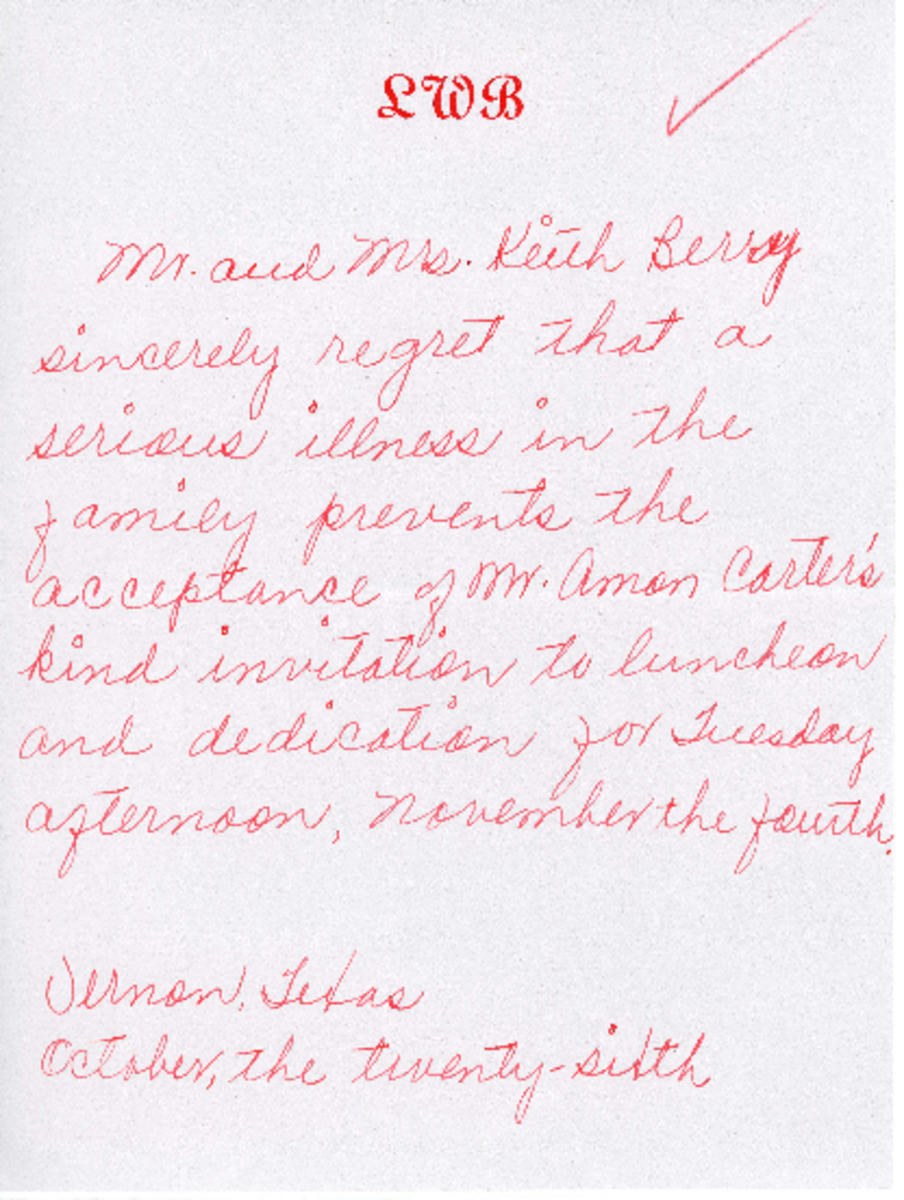 LWB
Mr. and Mrs. Keith Berry
sincerely regret that a
serious illness in the
family prevents the
acceptance of Mr. Amon Carter's
kind invitation to luncheon
and dedication for Tuesday
afternoon, November the fourth.
Vernon, Texas
October, the twenty-sixth